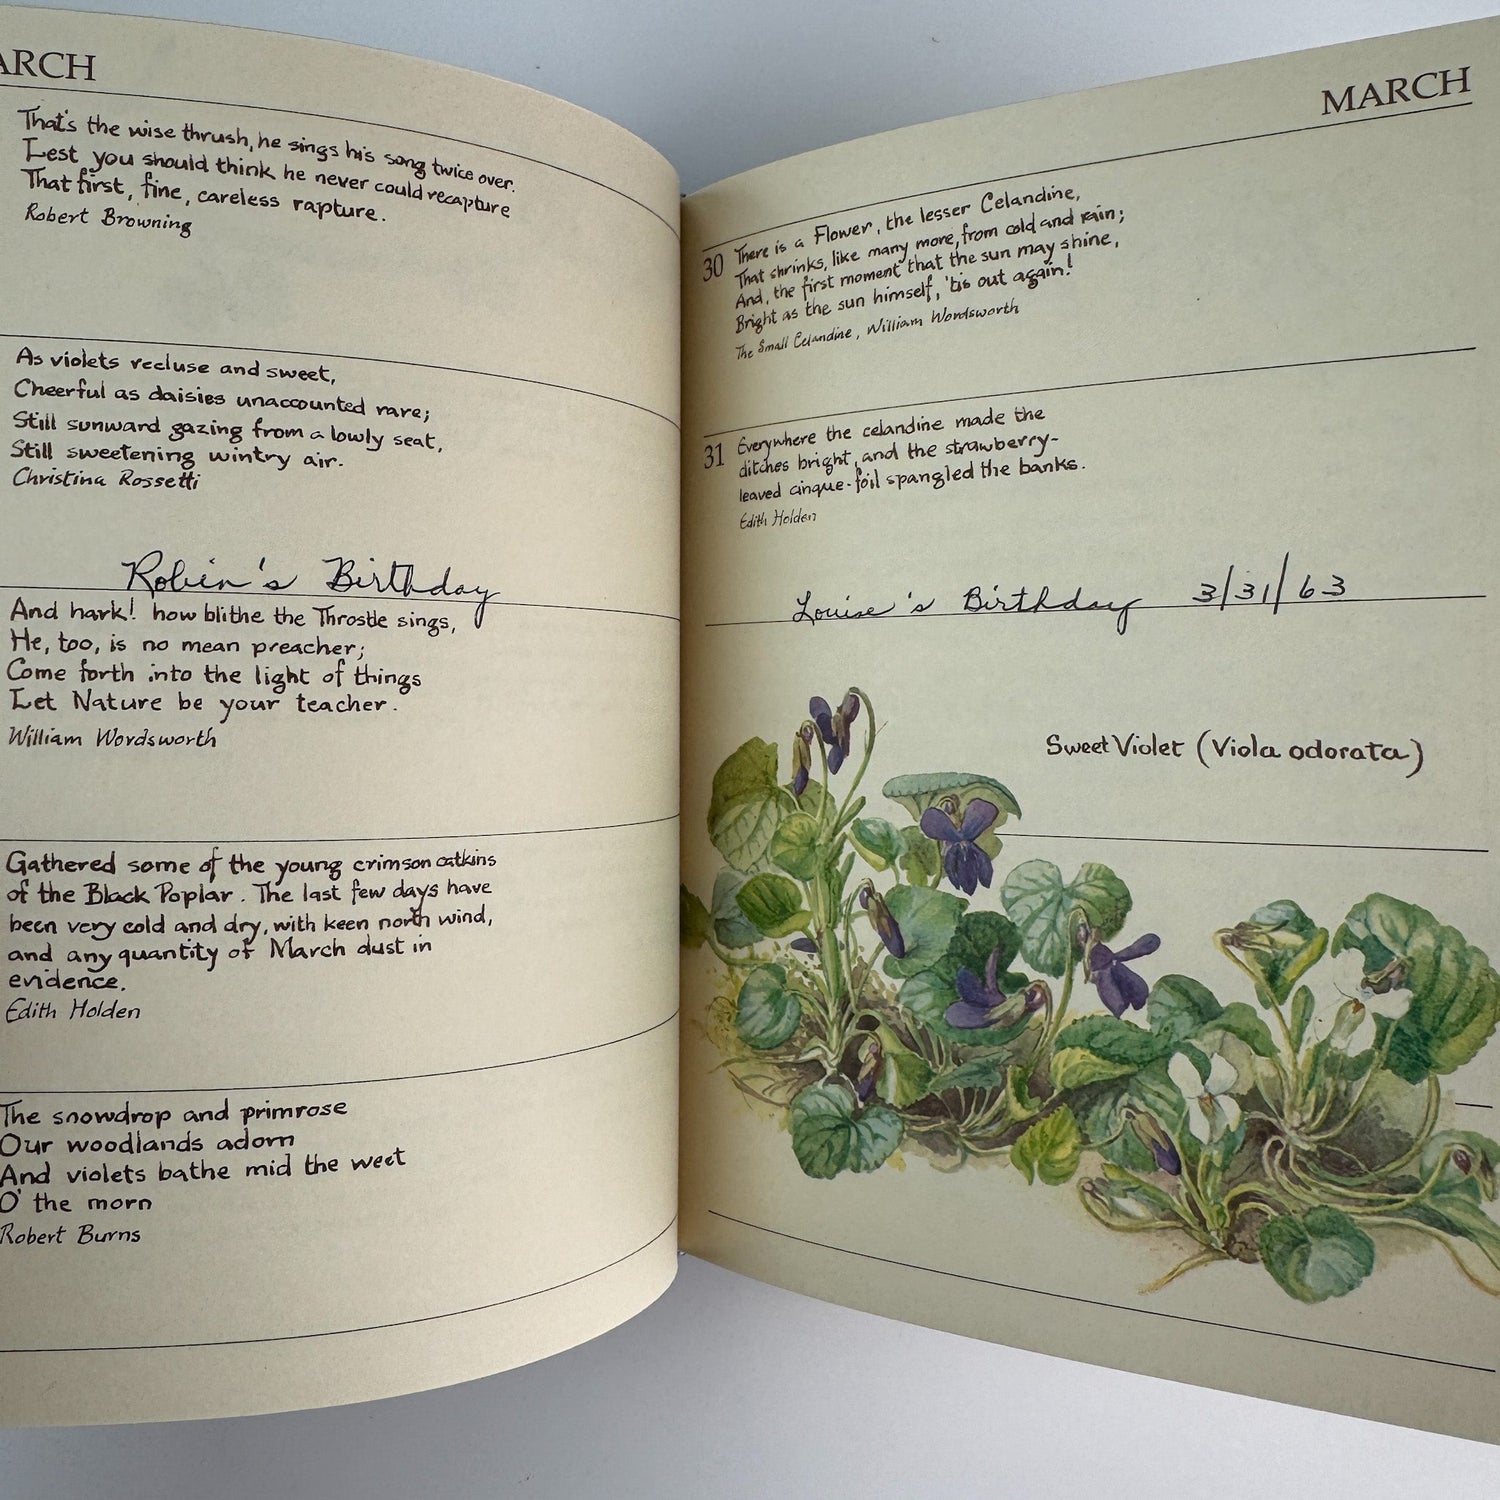 ARCH
That's the wise thrush, he sings his song twice over.
Lest you should think he never could recapture
That first, fine, careless rapture.
Robert Browning
As violets recluse and sweet,
Cheerful as daisies unaccounted rare;
Still sunward gazing from a lowly seat,
Still sweetening wintry air.
Christina Rossetti
Robin's Birthday
And hark! how blithe the Throstle sings,
He, too, is no mean preacher;
Come forth into the light of things
Let Nature be your teacher.
William Wordsworth
Gathered some of the young crimson catkins
of the Black Poplar. The last few days have
been very cold and dry, with keen north wind,
and any quantity of March dust in
evidence.
Edith Holden
The snowdrop and primrose
Our woodlands adorn
And violets bathe mid the weet
O' the morn
Robert Burns
MARCH
30 There is a Flower, the lesser Celandine,
That shrinks, like many more, from cold and rain;
And, the first moment that the sun may shine,
Bright as the sun himself, 'tis out again!
The Small Celandine, William Wordsworth
31 Everywhere the celandine made the
ditches bright, and the strawberry-
leaved cinque-foil spangled the banks.
Edith Holden
Louise's Birthday 3/31/63
Sweet Violet (Viola odorata)